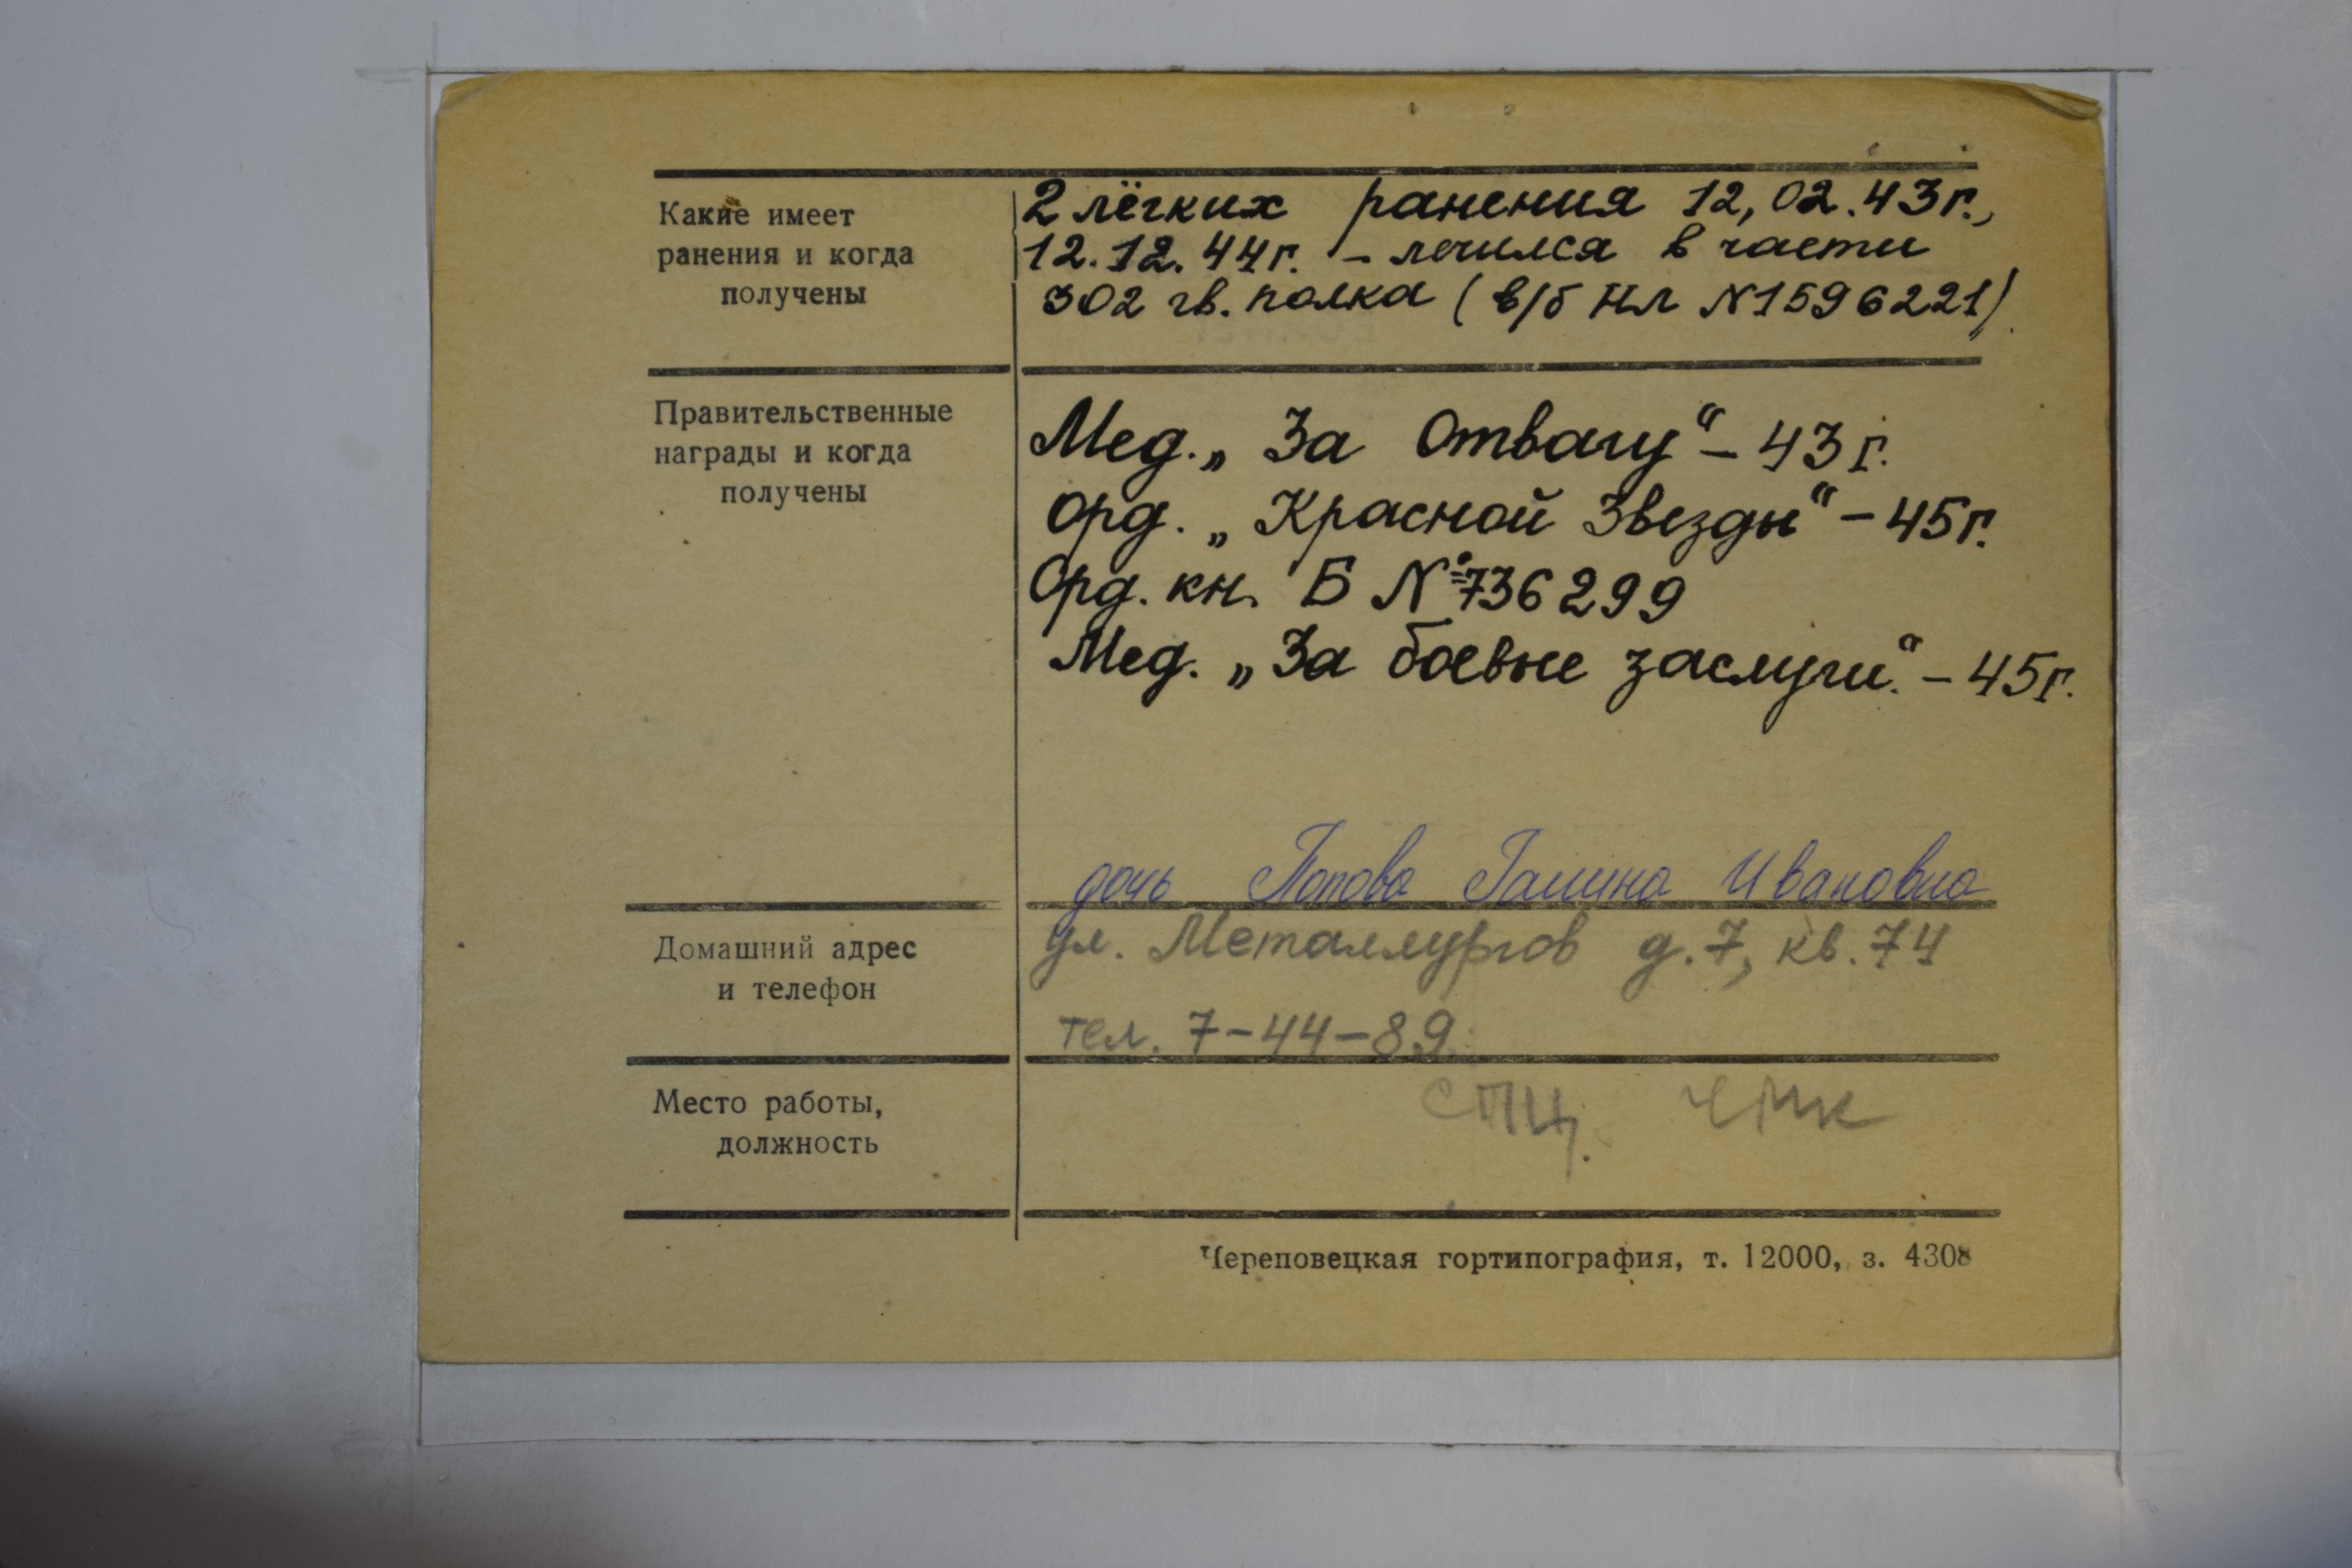 Какие имеет
ранения и когда
получены
2 лёгких ранения 12,02.43г.,
12.12.44г. – лечился в части
302 гв. полка (в/б НЛ №1596221).
Правительственные
награды и когда
получены
Мед. „За Отвагу“ – 43г.
Орд. „Красной Звезды“ – 45г.
Орд. кн. Б №736299
Мед. „За боевые заслуги.“ – 45г.
дочь Попова Галина Ивановна
Домашний адрес
и телефон
ул. Металлургов д.7, кв.74
тел. 7-44-89.
Место работы,
должность
СПЦ. ЧМК
Череповецкая гортипография, т. 12000, з. 4308